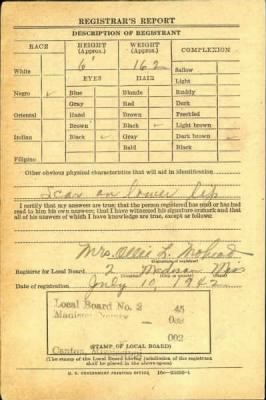 REGISTRAR'S REPORT
DESCRIPTION OF REGISTRANT
RACE HEIGHT (Approx.) WEIGHT (Approx.) COMPLEXION
White 6' 162 Sallow
EYES HAIR Light
Negro ✓ Blue Blonde Ruddy
Gray Red Dark
Oriental Hazel Brown Freckled
Brown Black ✓ Light brown
Indian Black ✓ Gray Dark brown ✓
Bald Black
Filipino
Other obvious physical characteristics that will aid in identification
Scar on lower lip
I certify that my answers are true; that the person registered has read or has had
read to him his own answers; that I have witnessed his signature or mark and that
all of his answers of which I have knowledge are true, except as follows:
Mrs. Ollie L. Mohead
Registrar for Local Board 2 Madison Miss
Date of registration July 10, 1942
Local Board No. 2 45
Madison County 089
002
Canton, Mississippi
(STAMP OF LOCAL BOARD)
(The stamp of the Local Board having jurisdiction of the registrant
shall be placed in the above space.)
U. S. GOVERNMENT PRINTING OFFICE